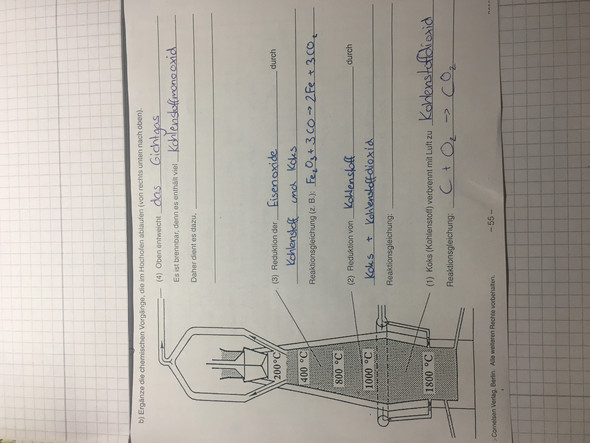 b) Ergänze die chemischen Vorgänge, die im Hochofen ablaufen (von rechts unten nach oben).
(4) Oben entweicht das Gichtgas
Es ist brennbar, denn es enthält viel Kohlenstoffmonooxid
Daher dient es dazu,
(3) Reduktion der Eisenoxide durch
Kohlenstoff und Koks
Reaktionsgleichung (z. B.): Fe₂O₃ + 3 CO → 2Fe + 3CO₂
(2) Reduktion von Kohlenstoff durch
Koks + Kohlenstoffdioxid
Reaktionsgleichung:
(1) Koks (Kohlenstoff) verbrennt mit Luft zu Kohlenstoffdioxid
Reaktionsgleichung: C + O₂ → CO₂
200 °C
400 °C
800 °C
1000 °C
1800 °C
Cornelsen Verlag, Berlin. Alle weiteren Rechte vorbehalten.
– 55 –